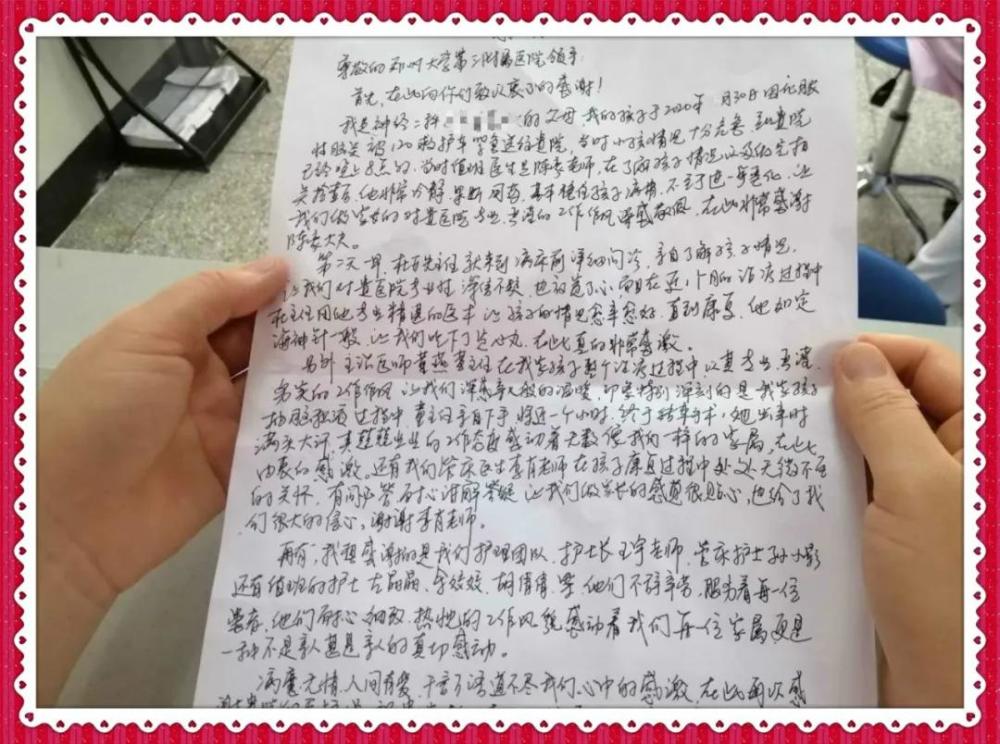 尊敬的郑州大学第三附属医院领导:
首先,在此向你们致以衷心的感谢!
我是神经二科 的父母,我的孩子于2020年 月30日因化脓
性脑炎被120救护车 送往贵院,当时小孩情况十分危急,到贵院
已经晚上8点多,当时值班医生是陈 老师,在了解孩子情况以及做完相
关检查后,他非常冷静、果断用药,基本稳住孩子病情,不至于进一步恶化,让
我们做家长的对贵医院专业、严谨的工作作风深感敬佩,在此非常感谢
陈 大夫。
第二天一早, 主任就来到病床前详细问诊,亲自了解孩子情况,
让我们对贵医院专业性深信不疑,也放宽了心,而且在近 个月的治疗过程中
主任用他专业精湛的医术让孩子的情况愈来愈好,直到康复,他如定
海神针一般,让我们吃下了定心丸,在此真的非常感激。
另外主治医师黄燕 主任在我家孩子整个治疗过程中以其专业、严谨、
务实的工作作风,让我们深感亲人般的温暖,印象特别深刻的是我家孩子
抽脑积液过程中, 主任亲自下手将近一个小时,终于结束手术,她出来时
满头大汗,其兢兢业业的工作态度感动着无数像我们一样的家属,在此
由衷的感激。还有我们管床医生李肖老师在孩子康复过程中处处无微不至
的关怀,有问必答,耐心讲解答疑,让我们做家长的感觉很贴心,也给了我
们很大的信心,谢谢李肖老师。
再有,我想感谢的是我们护理团队,护士长王宇老师,管床护士孙小影
还有值班的护士左晶晶、 姣姣、胡倩倩等,他们不辞辛苦,服务着每一位
患者,他们耐心、细致、热忱的工作风貌感动着我们每一位家属,更是
一种不是亲人甚是亲人的真切感动。
病魔无情,人间有爱,千言万语道不尽我们心中的感激,在此再次感